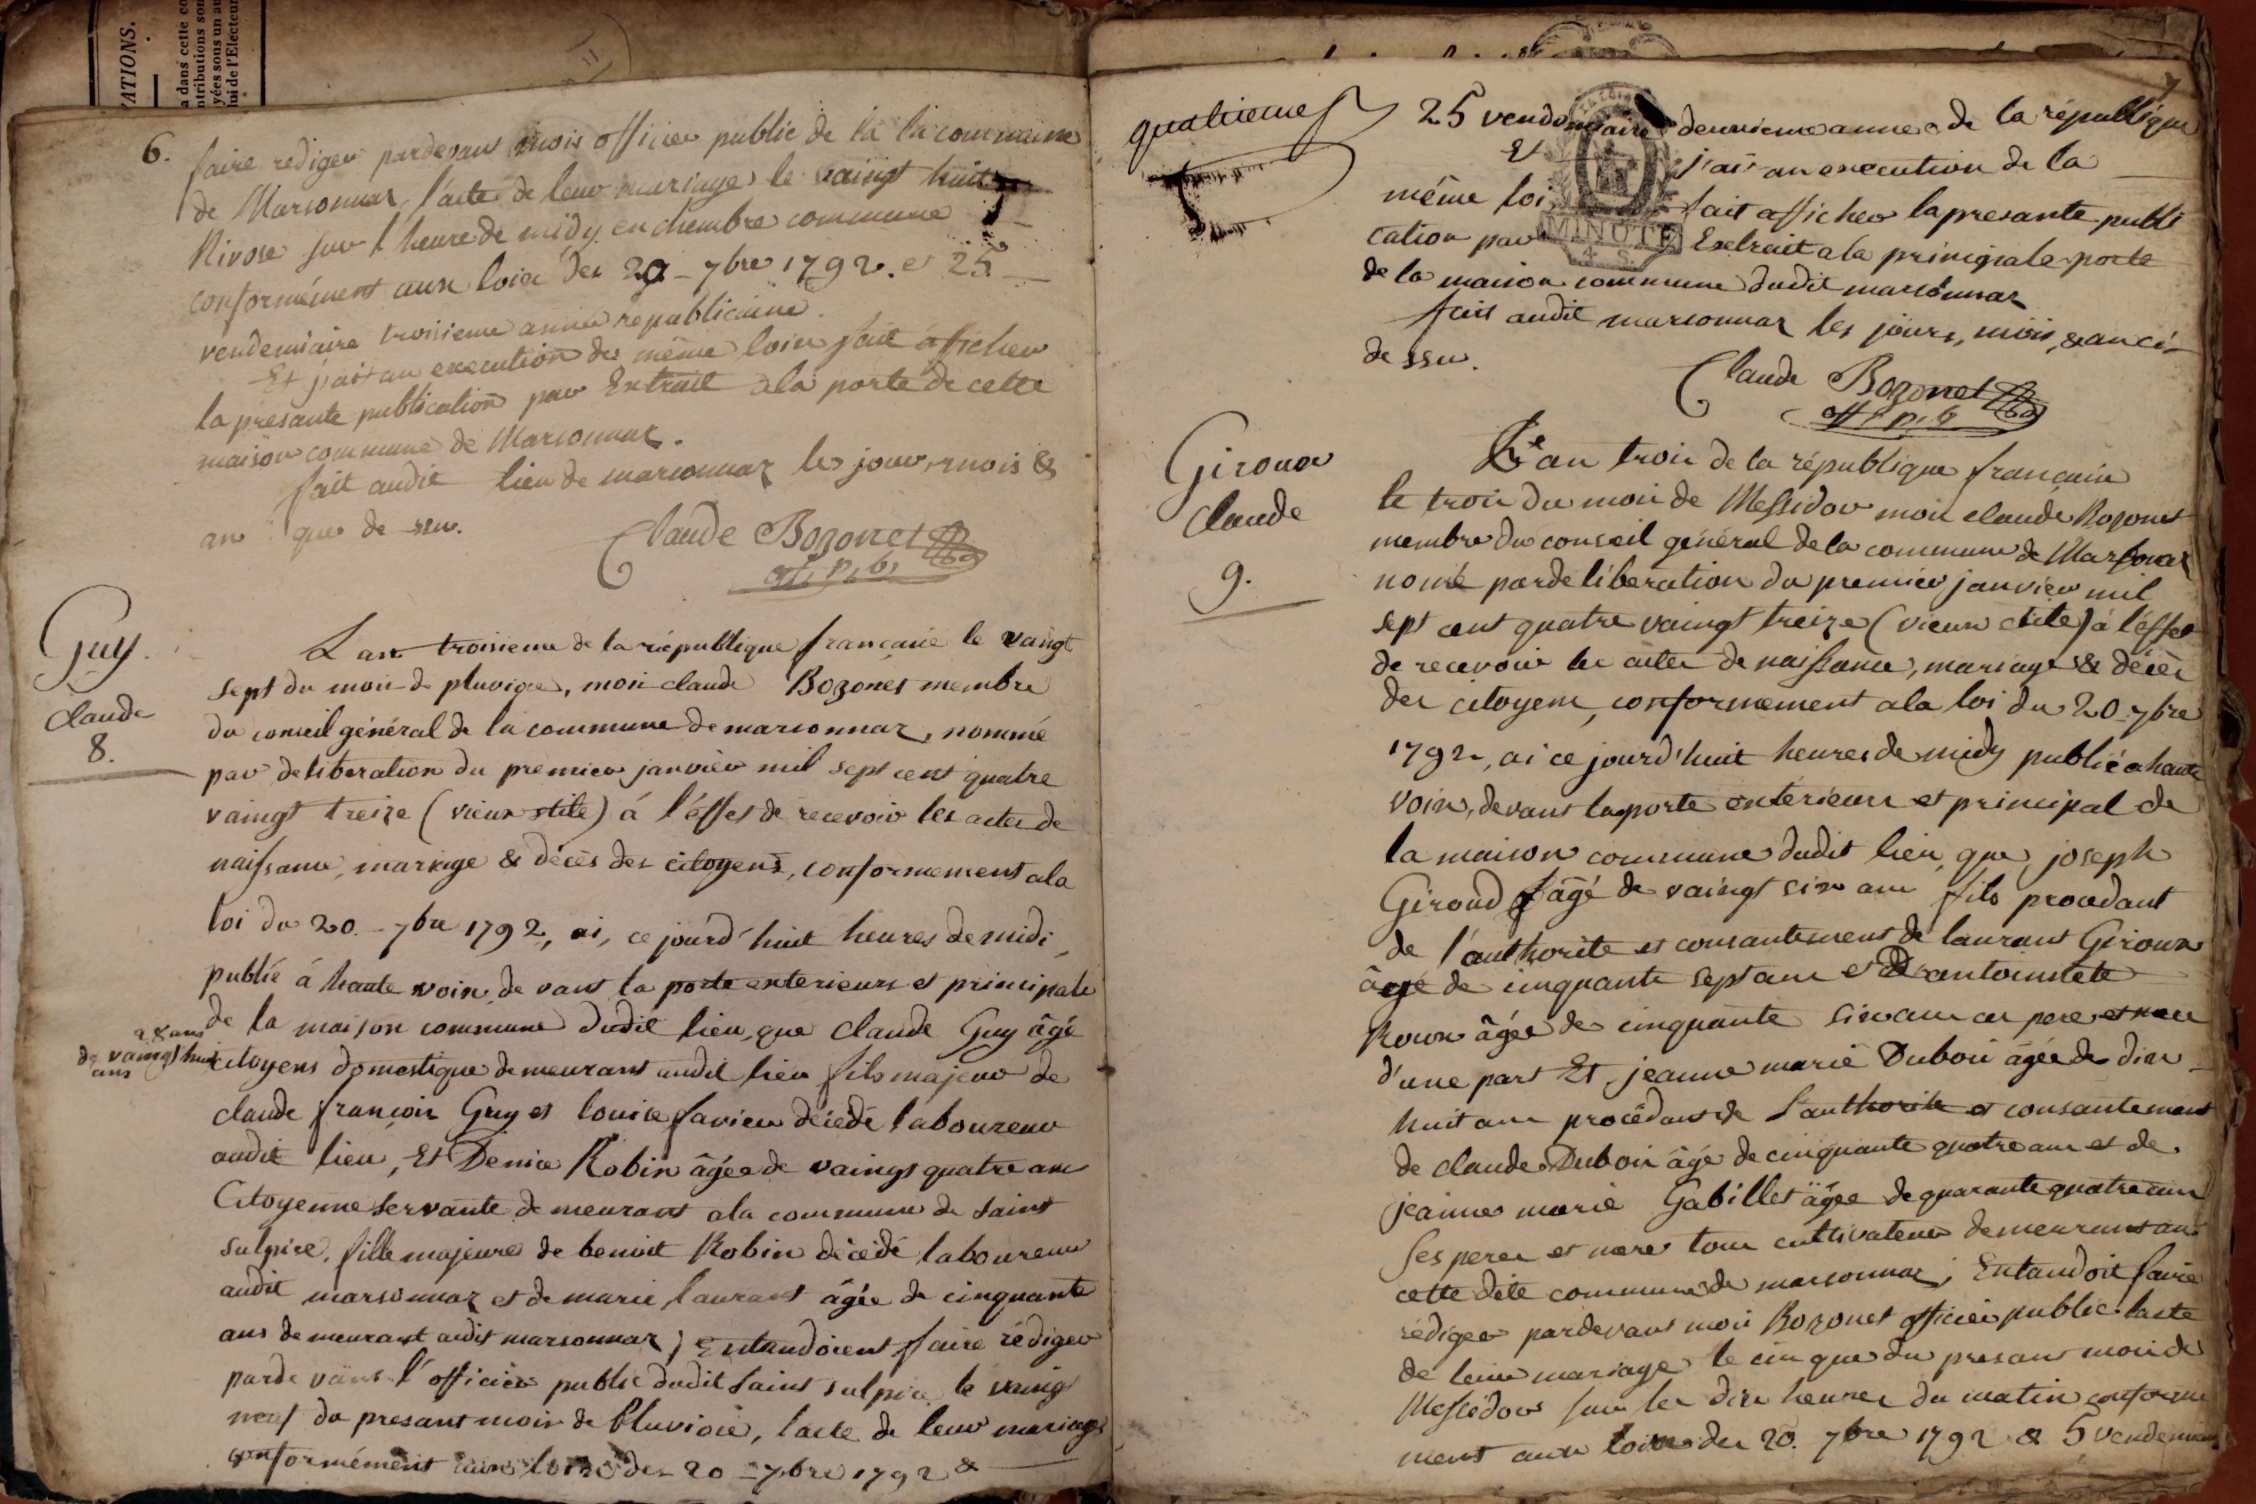 ATIONS.
a dans cette co
ntributions son
yées sous un au
lui de l'Electeur
6.
faire rediger pardevant mois officier public de la la commune
de Marsonnaz l'acte de leur mariage le vaingt huit
Nivose sur l'heure de midy en chembre commune
conformément aux loix des 20 - 7bre 1792. et 25
vendemiaire troisieme année republicaine.
Et j'ait an execution des même loix fait afficher
la presante publication par Extrait a la porte de cette
maison commune de Marsonnaz.
fait audit lieu de marsonnaz les jour, mois &
an que de ssu.
Claude Bozonet
off. p. b.
Guy.
Claude
8.
L'an troisieme de la république francaise le vaingt
sept du mois de pluviose, moi claude Bozonet membre
du conseil général de la commune de marsonnaz, nommé
par deliberation du premier janvier mil sept cent quatre
vaingt treize (vieux stile) á l'éffet de recevoir les actes de
naissance, mariage & décès des citoyens, conformement a la
loi du 20 - 7bre 1792, ai, ce jourd'huit heures de midi,
publié á haute voix, de vant la porte exterieure et principale
de la maison commune dudit lieu, que Claude Guy âgé
28 ans
de vaingt huit
ans
citoyens domestique demeurant audit lieu fils majeur de
claude françois Guy et louise favier décédé laboureur
audit lieu, Et Denise Robin âgée de vaingt quatre ans
Citoyenne servante demeurant a la commune de saint
sulpice, fille majeure de benoit Robin décédé laboureur
audit marsonnaz et de marie laurant âgée de cinquante
ans demeurant audit marsonnaz; Entandoient faire rédiger
pardevant l'officier public dudit saint sulpice le vaingt
neuf du presant mois de Pluviose, l'acte de leur mariage
conformément aux loix des 20 - 7bre 1792 &
quatrieme
25 vendemiaire deuxieme annee de la république
Et j'ai an execution de la
même loi fait afficher la presante publi
cation par Extrait a la principale porte
de la maison commune dudit marsonnaz
fait audit marsonnaz les jours, mois, & an ci-
de ssu.
MINUTE
4. S.
Claude Bozonet
off. p. b
Giroux
Claude
9.
L'an trois de la république française
le trois du mois de Messidor moi claude Bozonet
membre du conseil général de la commune de Marsonaz
nomé par deliberation du premier janvier mil
sept cent quatre vaingt treize (vieux stile) á l'éffet
de recevoir les actes de naissance, mariage & décès
des citoyens, conformement a la loi du 20 7bre
1792, ai ce jourd'huit heures de midy publié a haute
voix, devant la porte exterieure et principal de
la maison commune dudit lieu, que joseph
Giroud âgé de vaingt six ans fils procedant
de l'authorite et consantement de laurant Giroux
âgé de cinquante sept ans et de antoinette
Roux âgée de cinquante six ans ces pere et mere
d'une part Et jeanne marie Dubois âgée de dix
huit ans procédant de l'authorite et consantement
de claude Dubois âgé de cinquante quatre ans et de
jeanne marie Gabillet âgée de quarante quatre ans
ses peres et mere tous cultivateur demeurant an
cette dite commune de marsonnaz; Entandoit faire
rédiger pardevant moi Bozonet officier public l'acte
de leur mariage le cinque du presant mois de
Messidor sur les dix heures du matin conforme
ment aux loix des 20. 7bre 1792 & 5 vendemiaire